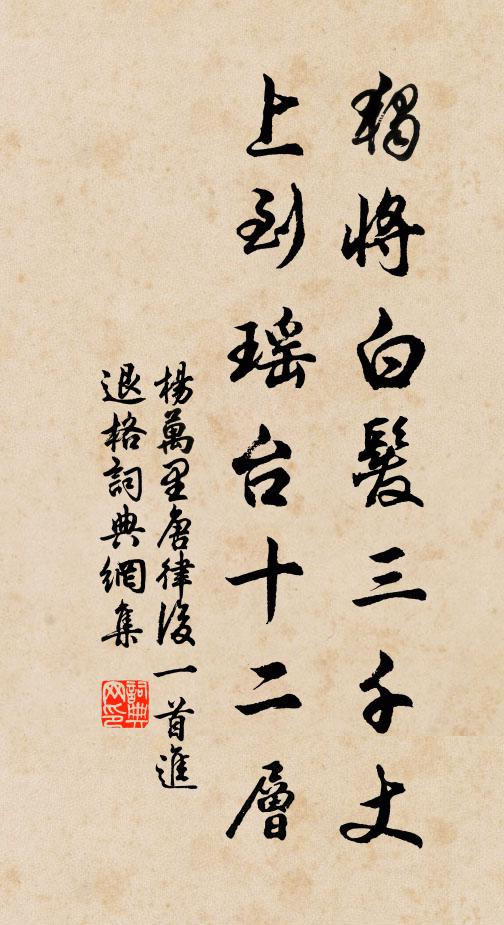 獨將白髮三千丈
上到瑤台十二層
楊萬里唐律後一首進
退格詞典網集
詞典
网印